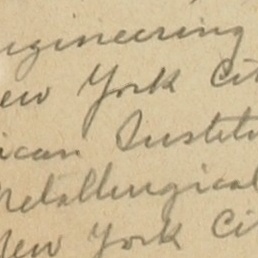 ngineering
ew York Ci
ican Institu
Metallurgical
New York Ci